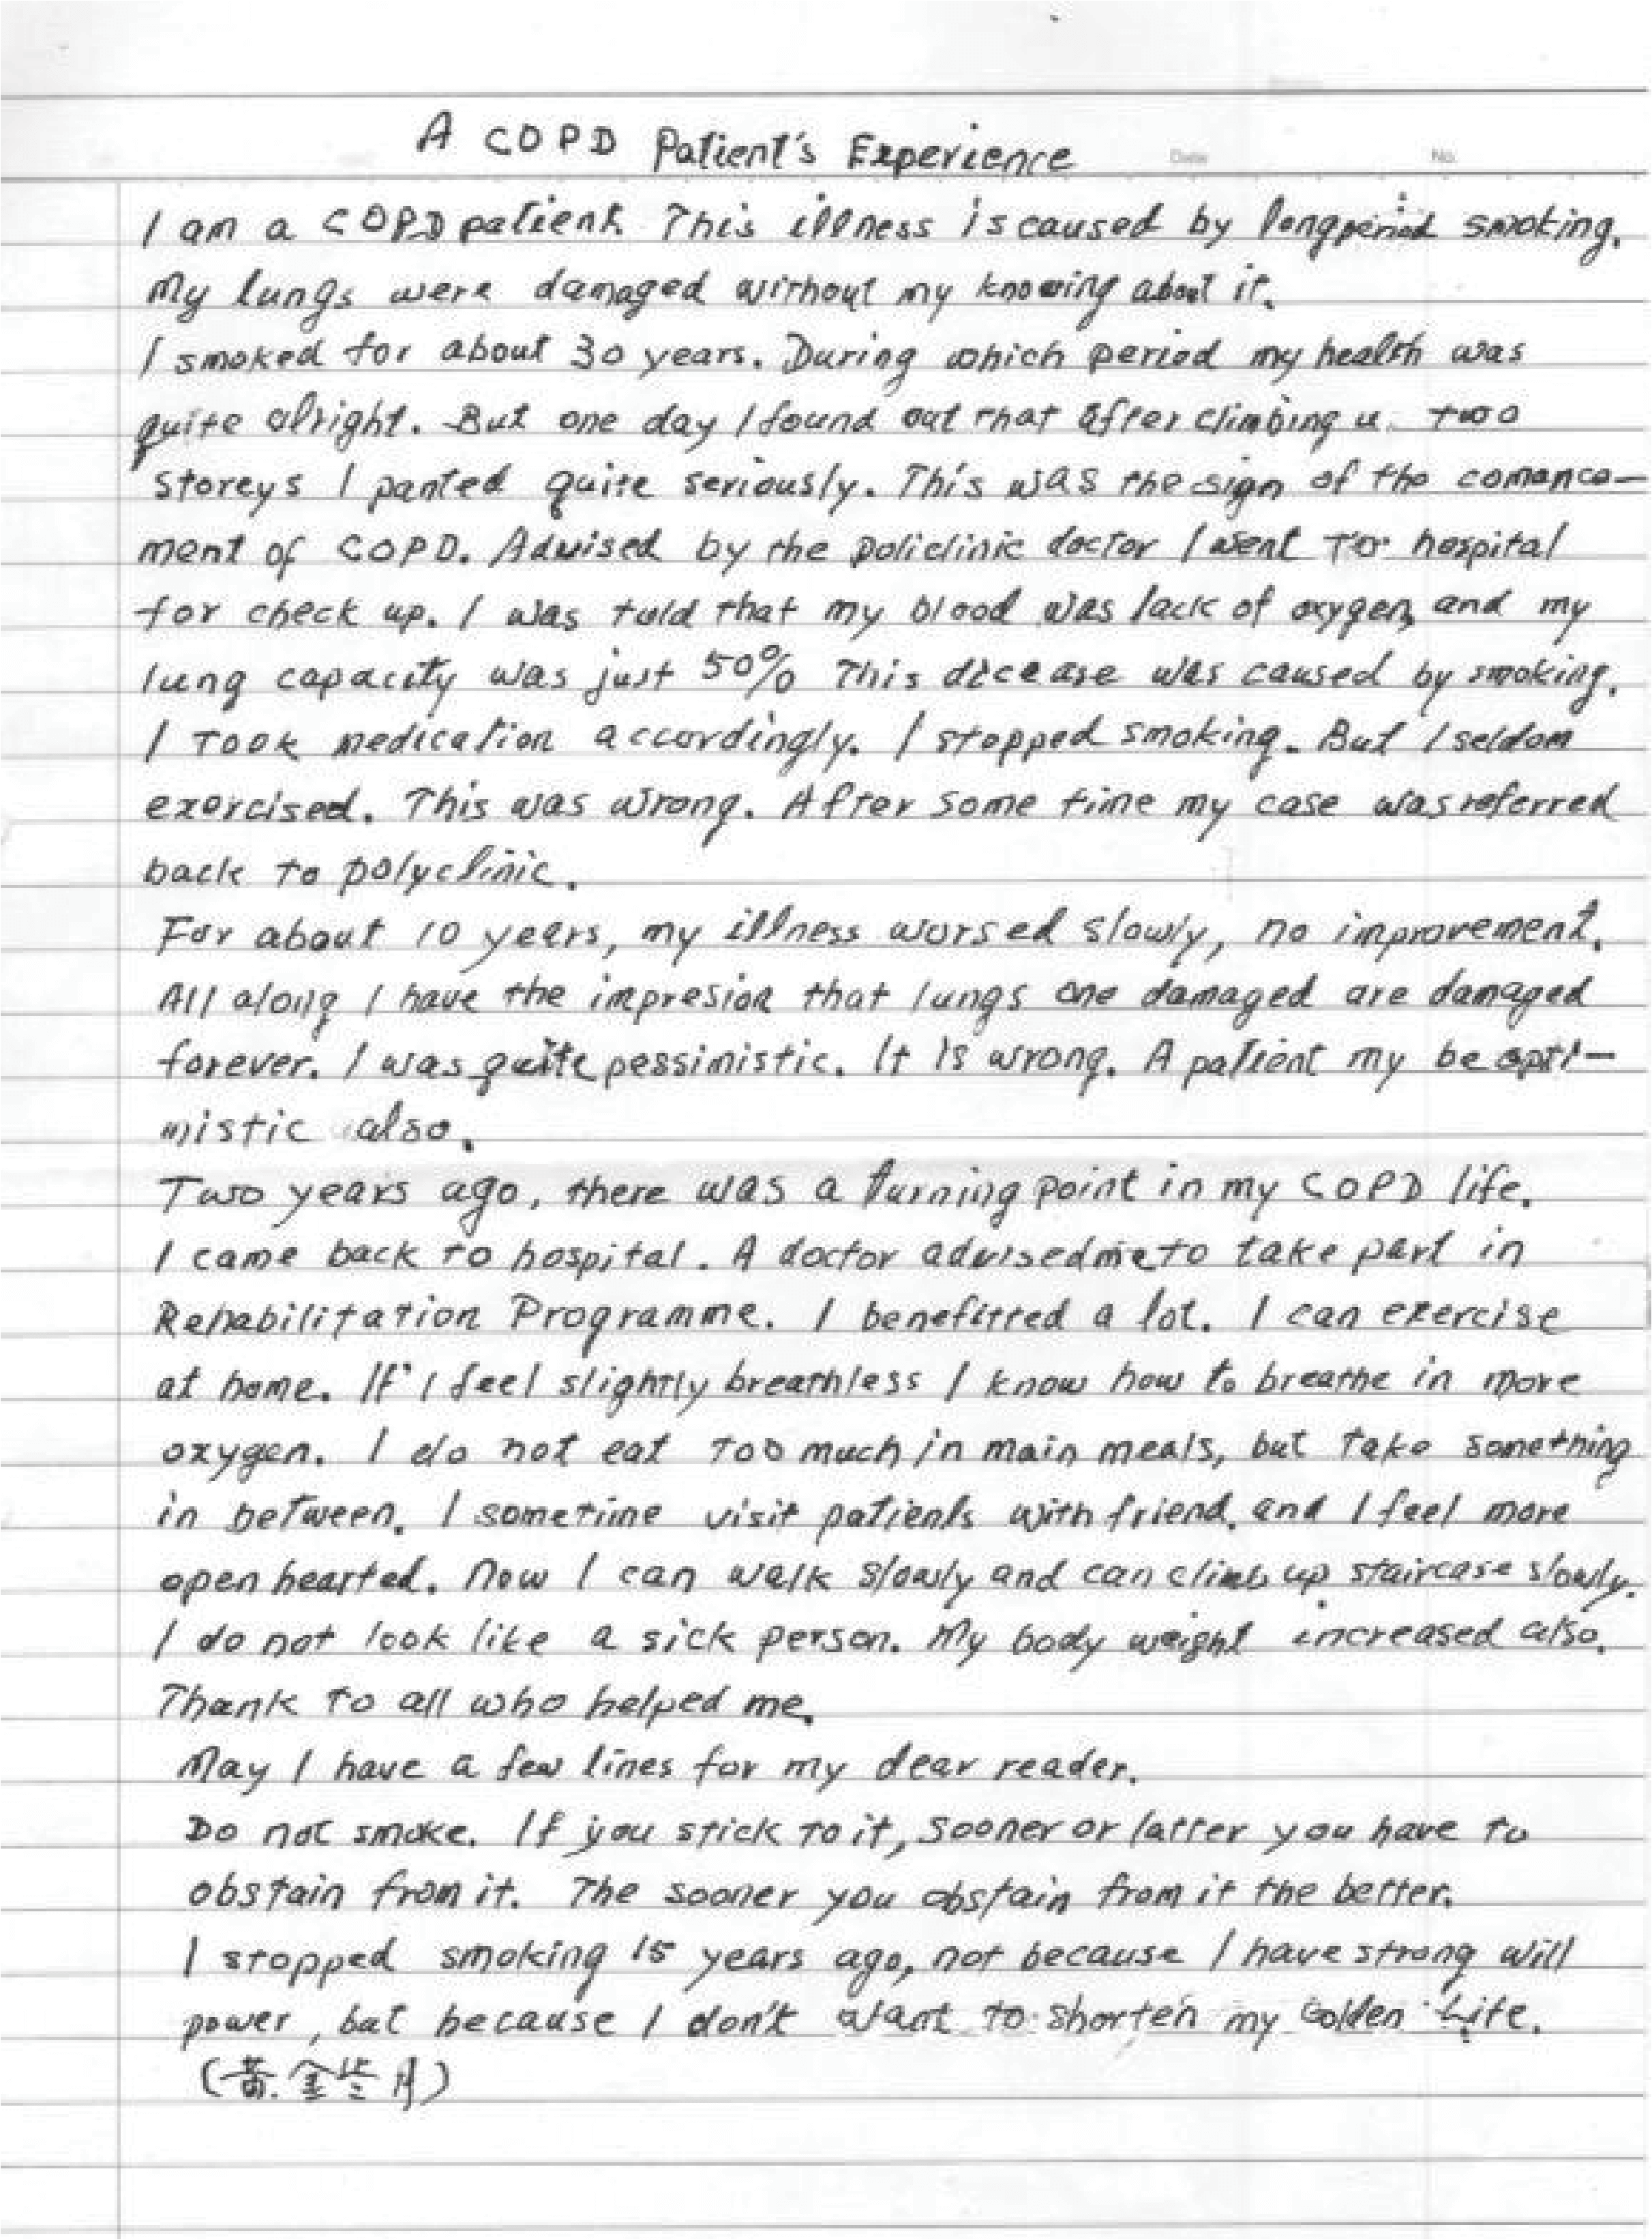 A COPD Patient's Experience
Date No.
I am a COPD patient. This illness is caused by long period smoking.
My lungs were damaged without my knowing about it.
I smoked for about 30 years. During which period my health was
quite alright. But one day I found out that after climbing u two
storeys I panted quite seriously. This was the sign of the comance-
ment of COPD. Advised by the policlinic doctor I went to hospital
for check up. I was told that my blood was lack of oxygen, and my
lung capacity was just 50% This dicease was caused by smoking.
I took medication accordingly. I stopped smoking. But I seldom
exercised. This was wrong. After some time my case was referred
back to polyclinic.
For about 10 years, my illness worsed slowly, no improvement.
All along I have the impresion that lungs one damaged are damaged
forever. I was quite pessimistic. It is wrong. A patient my be opti-
mistic also.
Two years ago, there was a turning point in my COPD life.
I came back to hospital. A doctor advised me to take part in
Rehabilitation Programme. I benefitted a lot. I can exercise
at home. If I feel slightly breathless I know how to breathe in more
oxygen. I do not eat too much in main meals, but take something
in between. I sometime visit patients with friend, and I feel more
open hearted. Now I can walk slowly and can climb up staircase slowly.
I do not look like a sick person. My body weight increased also.
Thank to all who helped me.
May I have a few lines for my dear reader.
Do not smoke. If you stick to it, sooner or latter you have to
obstain from it. The sooner you obstain from it the better.
I stopped smoking 15 years ago, not because I have strong will
power, but because I don't want to shorten my Golden Life.
(黄金岁月)